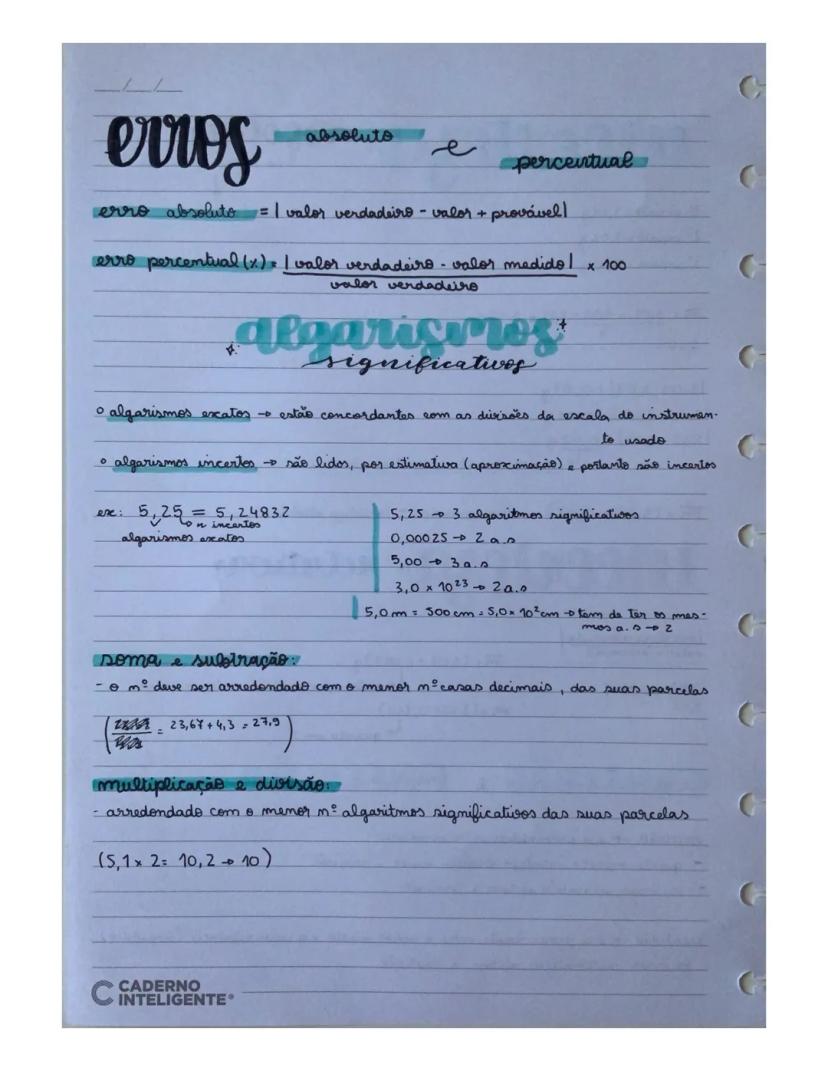 __/__/__
erros absoluto e percentual
erro absoluto = | valor verdadeiro - valor + provável |
erro percentual (%) = | valor verdadeiro - valor medido | x 100
valor verdadeiro
algarismos
significativos
° algarismos exatos → estão concordantes com as divisões da escala do instrumen-
to usado
° algarismos incertos → são lidos, por estimativa (aproximação) e portanto são incertos
ex: 5,25 = 5,24832
↳ n incertos
algarismos exatos
5,25 → 3 algaritmos significativos
0,00025 → 2 a.s
5,00 → 3 a.s
3,0 × 10²³ → 2 a.s
5,0 m = 500 cm = 5,0 × 10² cm → tem de ter os mes-
mos a.s → 2
soma e subtração:
- o nº deve ser arredondado com o menor nº casas decimais, das suas parcelas
( = 23,67 + 4,3 = 27,9 )
multiplicação e divisão:
- arredondado com o menor nº algaritmos significativos das suas parcelas
(5,1 × 2 = 10,2 → 10)
CADERNO
INTELIGENTE®